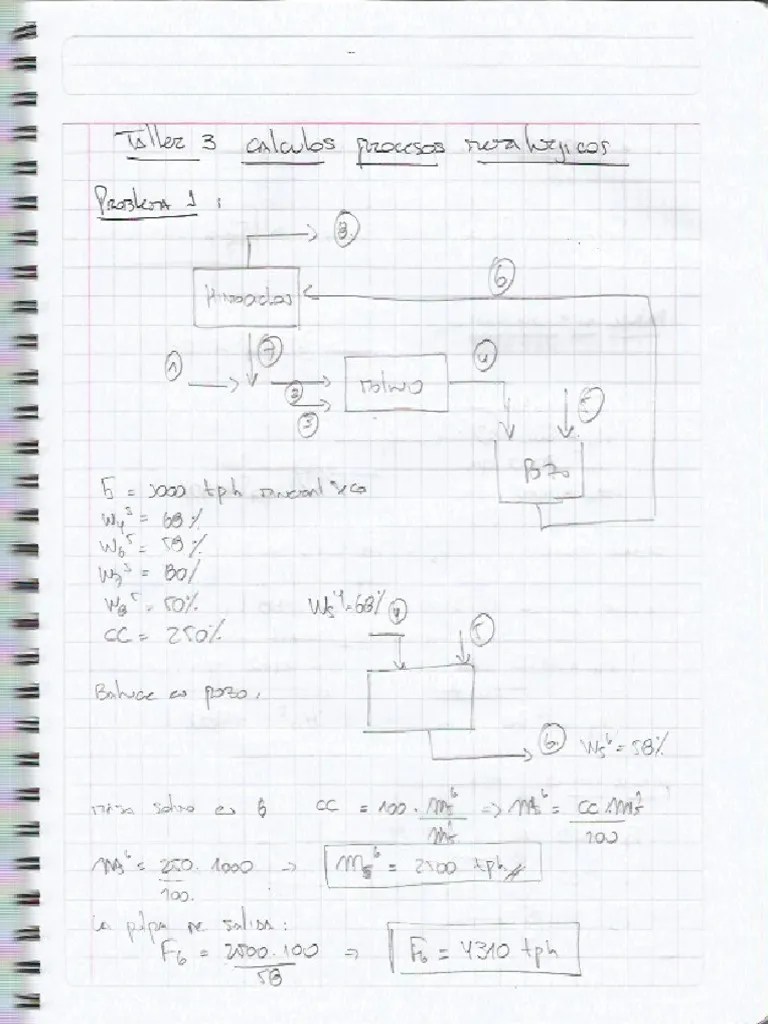 Taller 3 calculos procesos metalurgicos
Problema 1 :
8
6
7
1
4
2
molino
3
5
Pozo
F = 1000 tph
W4^s = 68%
W6^s = 58%
W7^s = 80%
W8^s = 50%
CC = 250%
Ws^4=68% 4
5
Balance en pozo.
6 Ws^6 = 58%
masa solido en 6 CC = 100 . ms^6 / ms^1 => ms^6 = CC . ms^1 / 100
ms^6 = 250 . 1000 / 100. -> ms^6 = 2500 tph
La pulpa de salida :
F6 = 2500 . 100 / 58 => F6 = 4310 tph